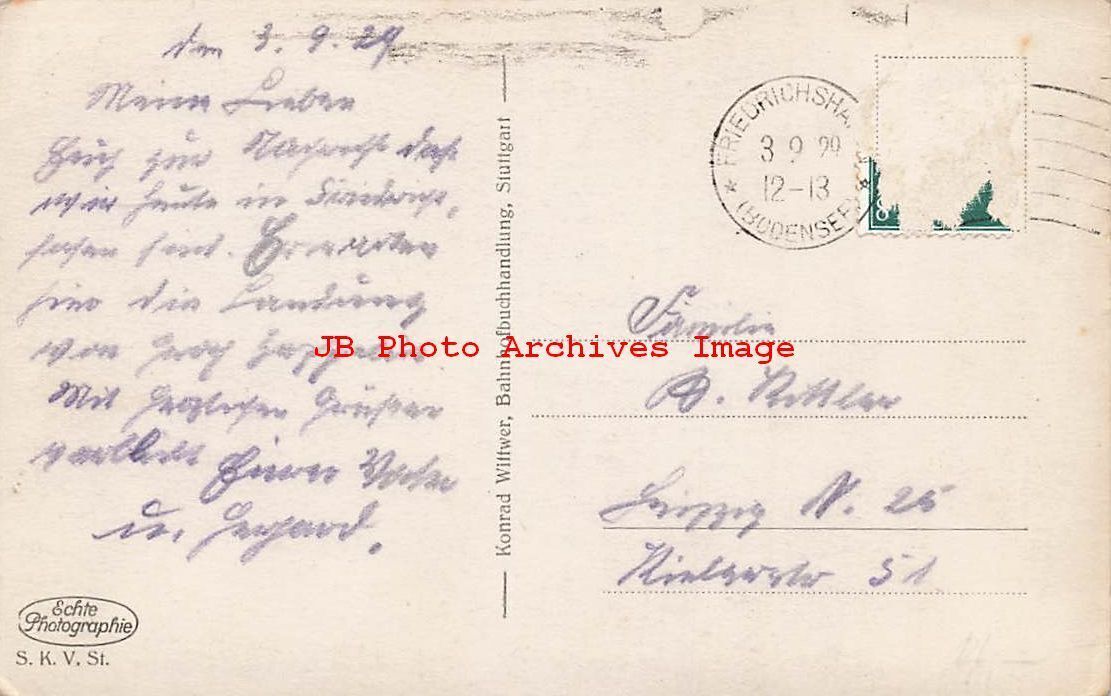 den 3.9.29.
Meine Lieben
Euch zur Nachricht daß
wir heute in Friedrichs-
hafen sind. Erwarten
hier die Landung
von Graf Zeppelin
Mit herzlichen Grüßen
verbleibt Euer Vater
u. Gerhard.
Echte
Photographie
S. K. V. St.
Konrad Wittwer, Bahnhofbuchhandlung, Stuttgart
FRIEDRICHSHA
3 9 29
12-13
(BODENSEE)
8
Familie
Leipzig N. 25
51
JB Photo Archives Image